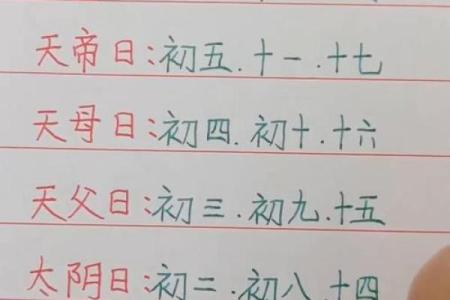 天帝日:初五.十一.十七
天母日:初四.初十.十六
天父日:初三.初九.十五
太阴日:初二.初八.十四